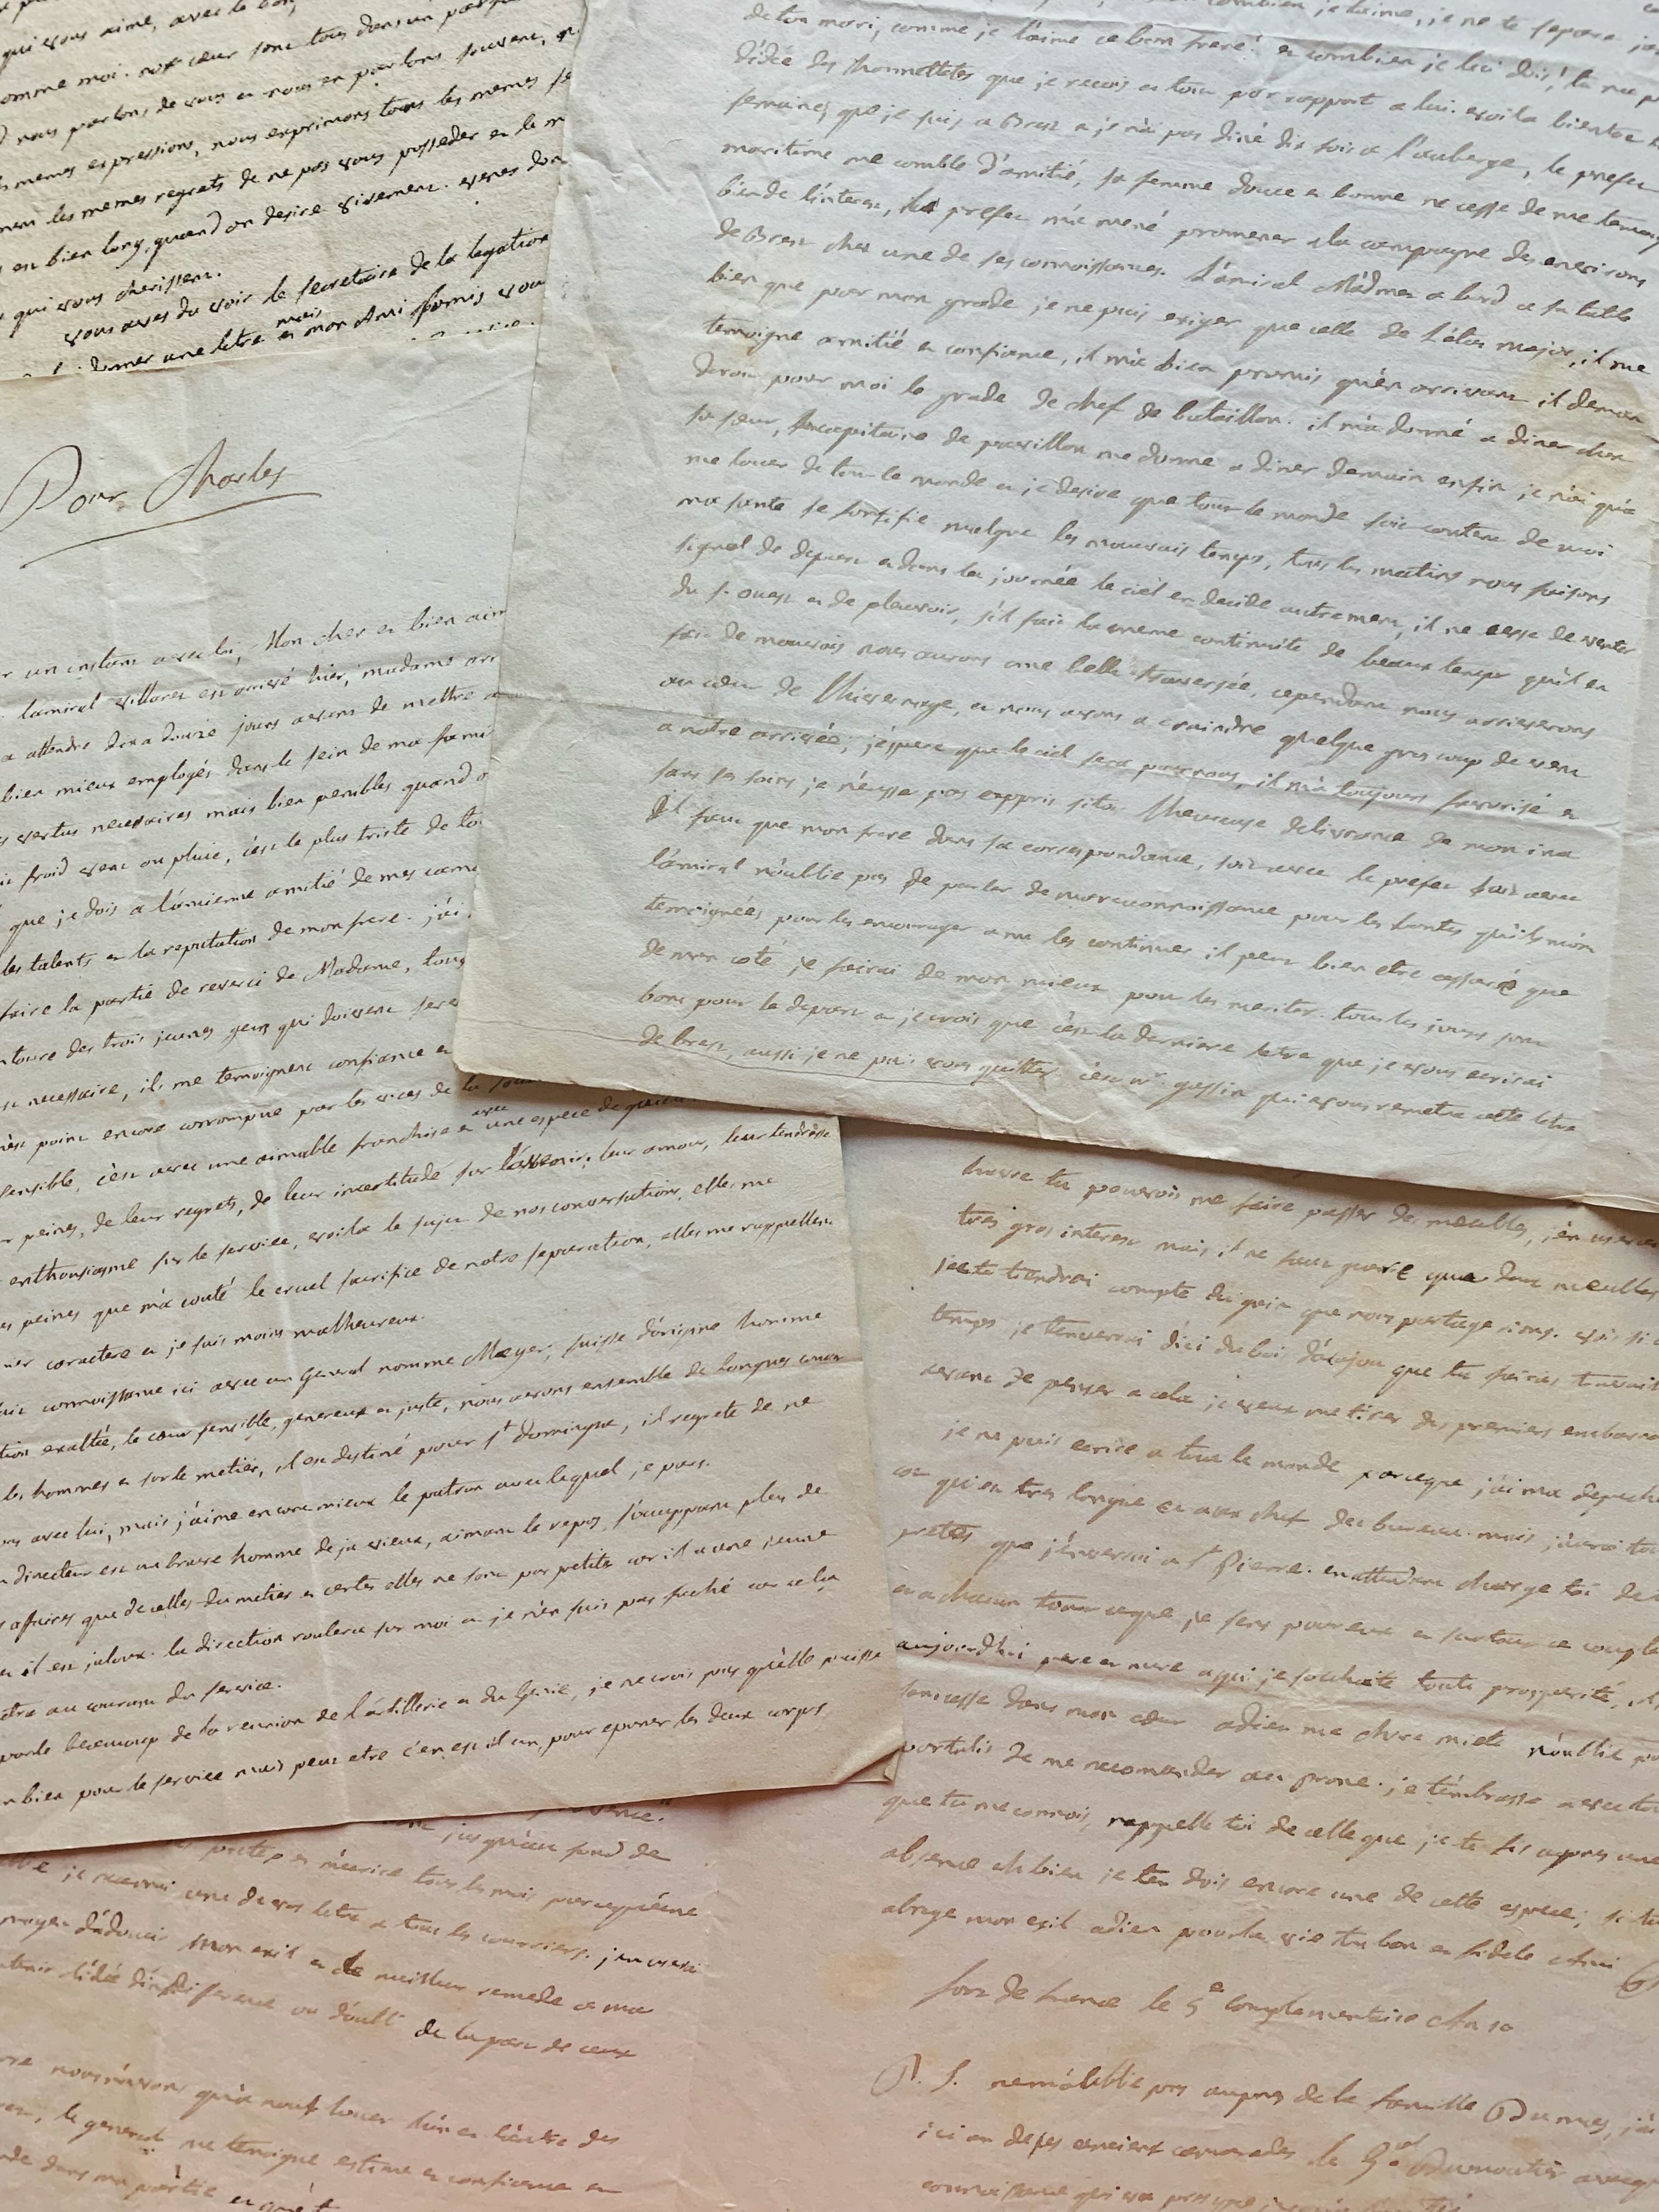 qui vous aime, avec le bon
comme moi. nos cœur sont tous dans un
nous parlons de vous et nous en parlons souvent,
memes expressions, nous exprimons tous les memes se
les memes regrets de ne pas vous posseder en le m
en bien long, quand on desire vivement. venes don
qui vous cherissent.
vous aves du voir le secretaire de la legation
donner une letre mais mon Ami fornis vou
Pour Charles
un instant avec toi, Mon cher et bien aim
lamiral villaret est arrivé hier, madame arr
a attendre dix a douze jours avant de mettre a
bien mieux employés dans le sein de ma fami
vertus necessaires mais bien penibles quand o
froid vent ou pluie, c'est le plus triste de to
que je dois a l'ancienne amitié de mes cama
les talents et la reputation de mon frere. j'ai
faire la partie de reversi de Madame, tous
des trois jeunes gens qui doivent ser
necessaire, ils me temoignent confiance et
point encore corrompue par les vices de la
sensible, c'est avec une aimable franchise et avec une espece de
peines, de leur regrets, de leur incertitude sur l'avenir, leur amour, leur tendresse
enthousiasme sur le service, voila le sujet de nos conversations, elles me
peines que m'a couté le cruel sacrifice de notre separation, elles me rappellent
caractere et je suis moins malheureux.
connoissance ici avec un General nommé Meyer, suisse d'origine homme
exaltée, le cœur sensible, genereux et juste, nous avons ensemble de longues conver
les hommes et sur le metier, il est destiné pour st domingue, il regrete de ne
avec lui, mais j'aime encore mieux le patron avec lequel je pars.
directeur est un brave homme deja vieux, aimant le repos, s'occuppant plus de
affaires que de celles du metier et certes elles ne sont pas petites car il a une jeune
il est jaloux. la direction roulera sur moi et je n'en suis pas faché car cela
au courant du service.
parle beaucoup de la reunion de l'artillerie et du Genie, je ne crois pas qu'elle puisse
bien pour le service mais peut etre c'en est il un, pour eponer les deux corps,
combien je t'aime, je ne te separe ja
de ton mari, comme je l'aime ce bon frere! et combien je lui dois! tu ne p
d'idée des honnettetés que je recois et tout par rapport a lui. voila bientot
semaines que je suis a Brest et je n'ai pas diné dix fois a l'auberge, le prefet
maritime me comble d'amitié, sa femme douce et bonne ne cesse de me temoig
bien de l'interest, le prefet m'a mené promener a la campagne des environs
de Brest chez une de ses connoissances. l'amiral m'admet a bord a sa table
bien que par mon grade je ne puis exiger que celle de l'etat major, il me
temoigne amitié et confiance, il m'a bien promis qu'en arrivant il deman
deroit pour moi le grade de chef de bataillon. il m'a donné a diner chez
sa sœur, son capitaine de pavillon me donne a diner demain enfin je n'ai qu'a
me louer de tout le monde et je desire que tout le monde soit content de moi
ma santé se fortifie malgré les mauvais temps, tous les matins nous faisons
signal de depart et dans la journée le ciel en decide autrement, il ne cesse de venter
du s. ouest et de pleuvoir, s'il fait la meme continuité de beaux temps qu'il en
fait de mauvais nous aurons une belle traversée, cependant nous arriverons
au cœur de l'hivernage, et nous avons a craindre quelque gros coup de vent
a notre arrivée; j'espere que le ciel sera pour nous, il m'a toujours favorisé et
sans ses soins je n'eusse pas appris sitot l'heureuse delivrance de mon
il faut que mon frere dans sa correspondance, soit avec le prefet soit avec
l'amiral n'oublie pas de parler de ma reconnoissance pour les bontés qu'ils m'ont
temoignées pour les encourager a me les continuer il peut bien etre assuré que
de mon coté je fairai de mon mieux pour les meriter. tous les jours sont
bons pour le depart et je crois que c'est la derniere letre que je vous ecrirai
de brest, aussi je ne puis vous quitter c'est mr gassin qui vous remetra cette letre
havre tu pouvois me faire passer des meubles, j'en
tres gros interest mais il ne faut guere que des meubles
je te tiendrai compte du gain que nous partagerions.
temps je t'enverrai d'ici du bois d'acajou que tu fairas travail
avant de penser a cela je veux me tirer des premiers embarra
je ne puis ecrire a tout le monde parceque j'ai ma depeche
qui est tres longue et aux chef des bureau. mais j'aurai tou
pretes que j'enverrai a st Pierre. en attendant charge toi de
a chacun tout ce que je sens pour eux et surtout ce couple
aujourd'hui pere et mere a qui je souhaite toute prosperité,
sans cesse dans mon cœur adieu ma chere miete n'oublie pa
portalis de me recomander au prone. je t'embrasse avec tou
que tu me connois, rappelle toi de celle que je te fis apres une
absence eh bien je ten dois encore une de cette espece; si tu
abrege mon exil adieu pour la vie ton bon et fidele Ami
fort de france le 5e complementaire An 10
P. S. ne m'oublie pas aupres de la famille Dumas, j'ai
ici un de ses anciens camarades le Gal Dumoutier avec
jusqu'au fond de
m'ecrire tous les mois
je recevrai une de vos letre a tous les courriers.
d'adoucir mon exil et le meilleur remede a ma
l'idée d'indifference ou d'oubli de la part de ceux
nous n'avons qu'a nous louer l'un et l'autre des
le general me temoigne estime et confiance et
dans ma partie